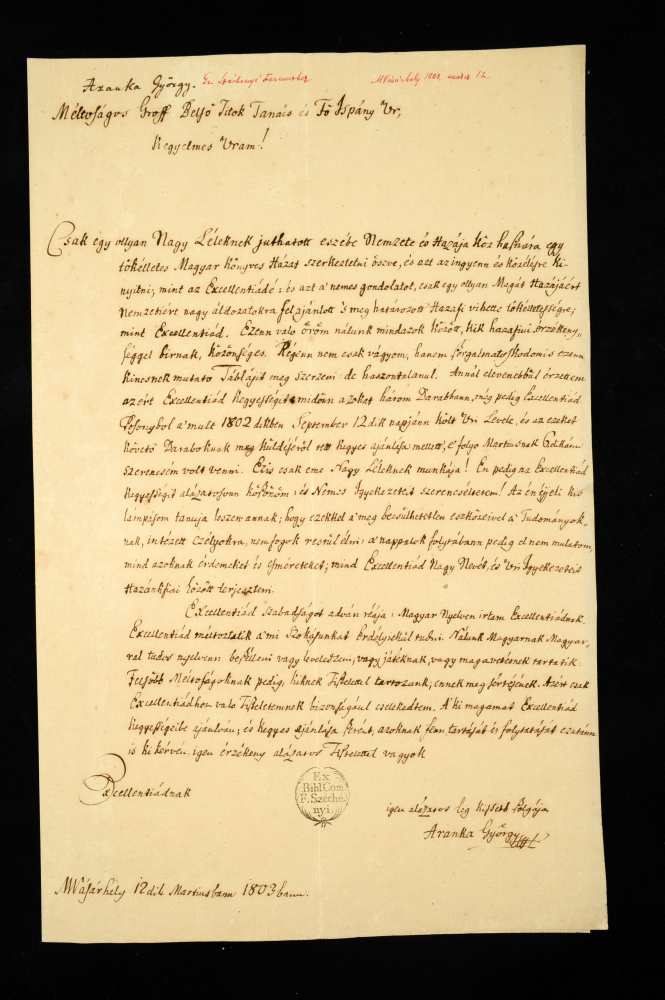 Aranka György. Gr. Széchényi Ferencz
MVásárhely 1803. martius 12.
Méltoságos Groff Belső Titok Tanács és Fő Ispány Ur,
Kegyelmes Uram!
Csak egy ollyan Nagy Léleknek juthatott eszébe Nemzete és Hazája köz hasznára egy
tökélletes Magyar Könyves Házat szerkeztetni öszve, és azt az ingyenn és közölésre ki-
nyitni; mint az Excellentiádé: és azt a' nemes gondolatot, csak egy ollyan Magát Hazájáért
Nemzetiére nagy áldozatokra fel ajánlott 's meg határozott Hazafi vihette tökélletességre;
mint Excellentiád. Ezenn való öröm nálunk mindazok között, kik hazafiui érzékeny-
séggel birnak, közönséges. Régenn nem csak vágyom, hanem forgalmatoskodom is ezenn
kincsnek mutató Tábláját meg szerezni: de haszontalanul. Annál elevenebbül érzettem
azért Excellentiád kegyességit midőnn azokat három Darabbann, még pedig Excellentiád
Posonybol a' mult 1802dikben September 12dik napjánn költ Uri Levele, és az ezeket
követő Daraboknak meg küldéséről tett kegyes ajánlása mellett, e' folyo Martiusnak 6dikánn
szerencsém volt venni. Ez is csak eme Nagy Léleknek munkája! Én pedig az Excellentiád
kegyességit alázatosonn köszönöm: és Nemes Igyekezetit szerencséltetem! Az én éjjeli kis
lámpásom tanuja leszen annak; hogy ezekkel a' meg becsülhetetlen eszközeivel a' Tudományok-
nak, intézett czélyokra, nem fogok restül élni: a' nappalok folytábann pedig el nem mulatom,
mind azoknak érdemeket és esméreteket; mind Excellentiád Nagy Nevét, és Uri Igyekezeteit
Hazánkfiai között terjeszteni.
Excellentiád Szabadságot adván réája: Magyar Nyelven irtam Excellentiádnak.
Excellentiád méltoztatik a' mi Szokásunkat Erdélyiekül tudni. Nálunk Magyarnak Magyar-
ral tudos nyelvenn beszélleni vagy levelezzeni, vagy játéknak, vagy maga vetésnek tartatik
Felsőbb Méltoságoknak pedig, kiknek Tisztelettel tartozunk, ennek meg sértésének. Azért csak
Excellentiádhoz való Tiszteletemnek bizonságául cselekedtem. A' ki magamat Excellentiád
Kegyességeibe ajánlván; és kegyes ajánlása szerént, azoknak fenn tartását és folytatását ezutánn
is ki kérvén, igen érzékeny alázatos Tisztelettel vagyok
Excellentiádnak
Ex
Bibl. Com.
F. Széché-
nyi.
igen alázatos leg kissebb szolgája
Aranka György
MVásárhely 12dik Martiusbann 1803bann.